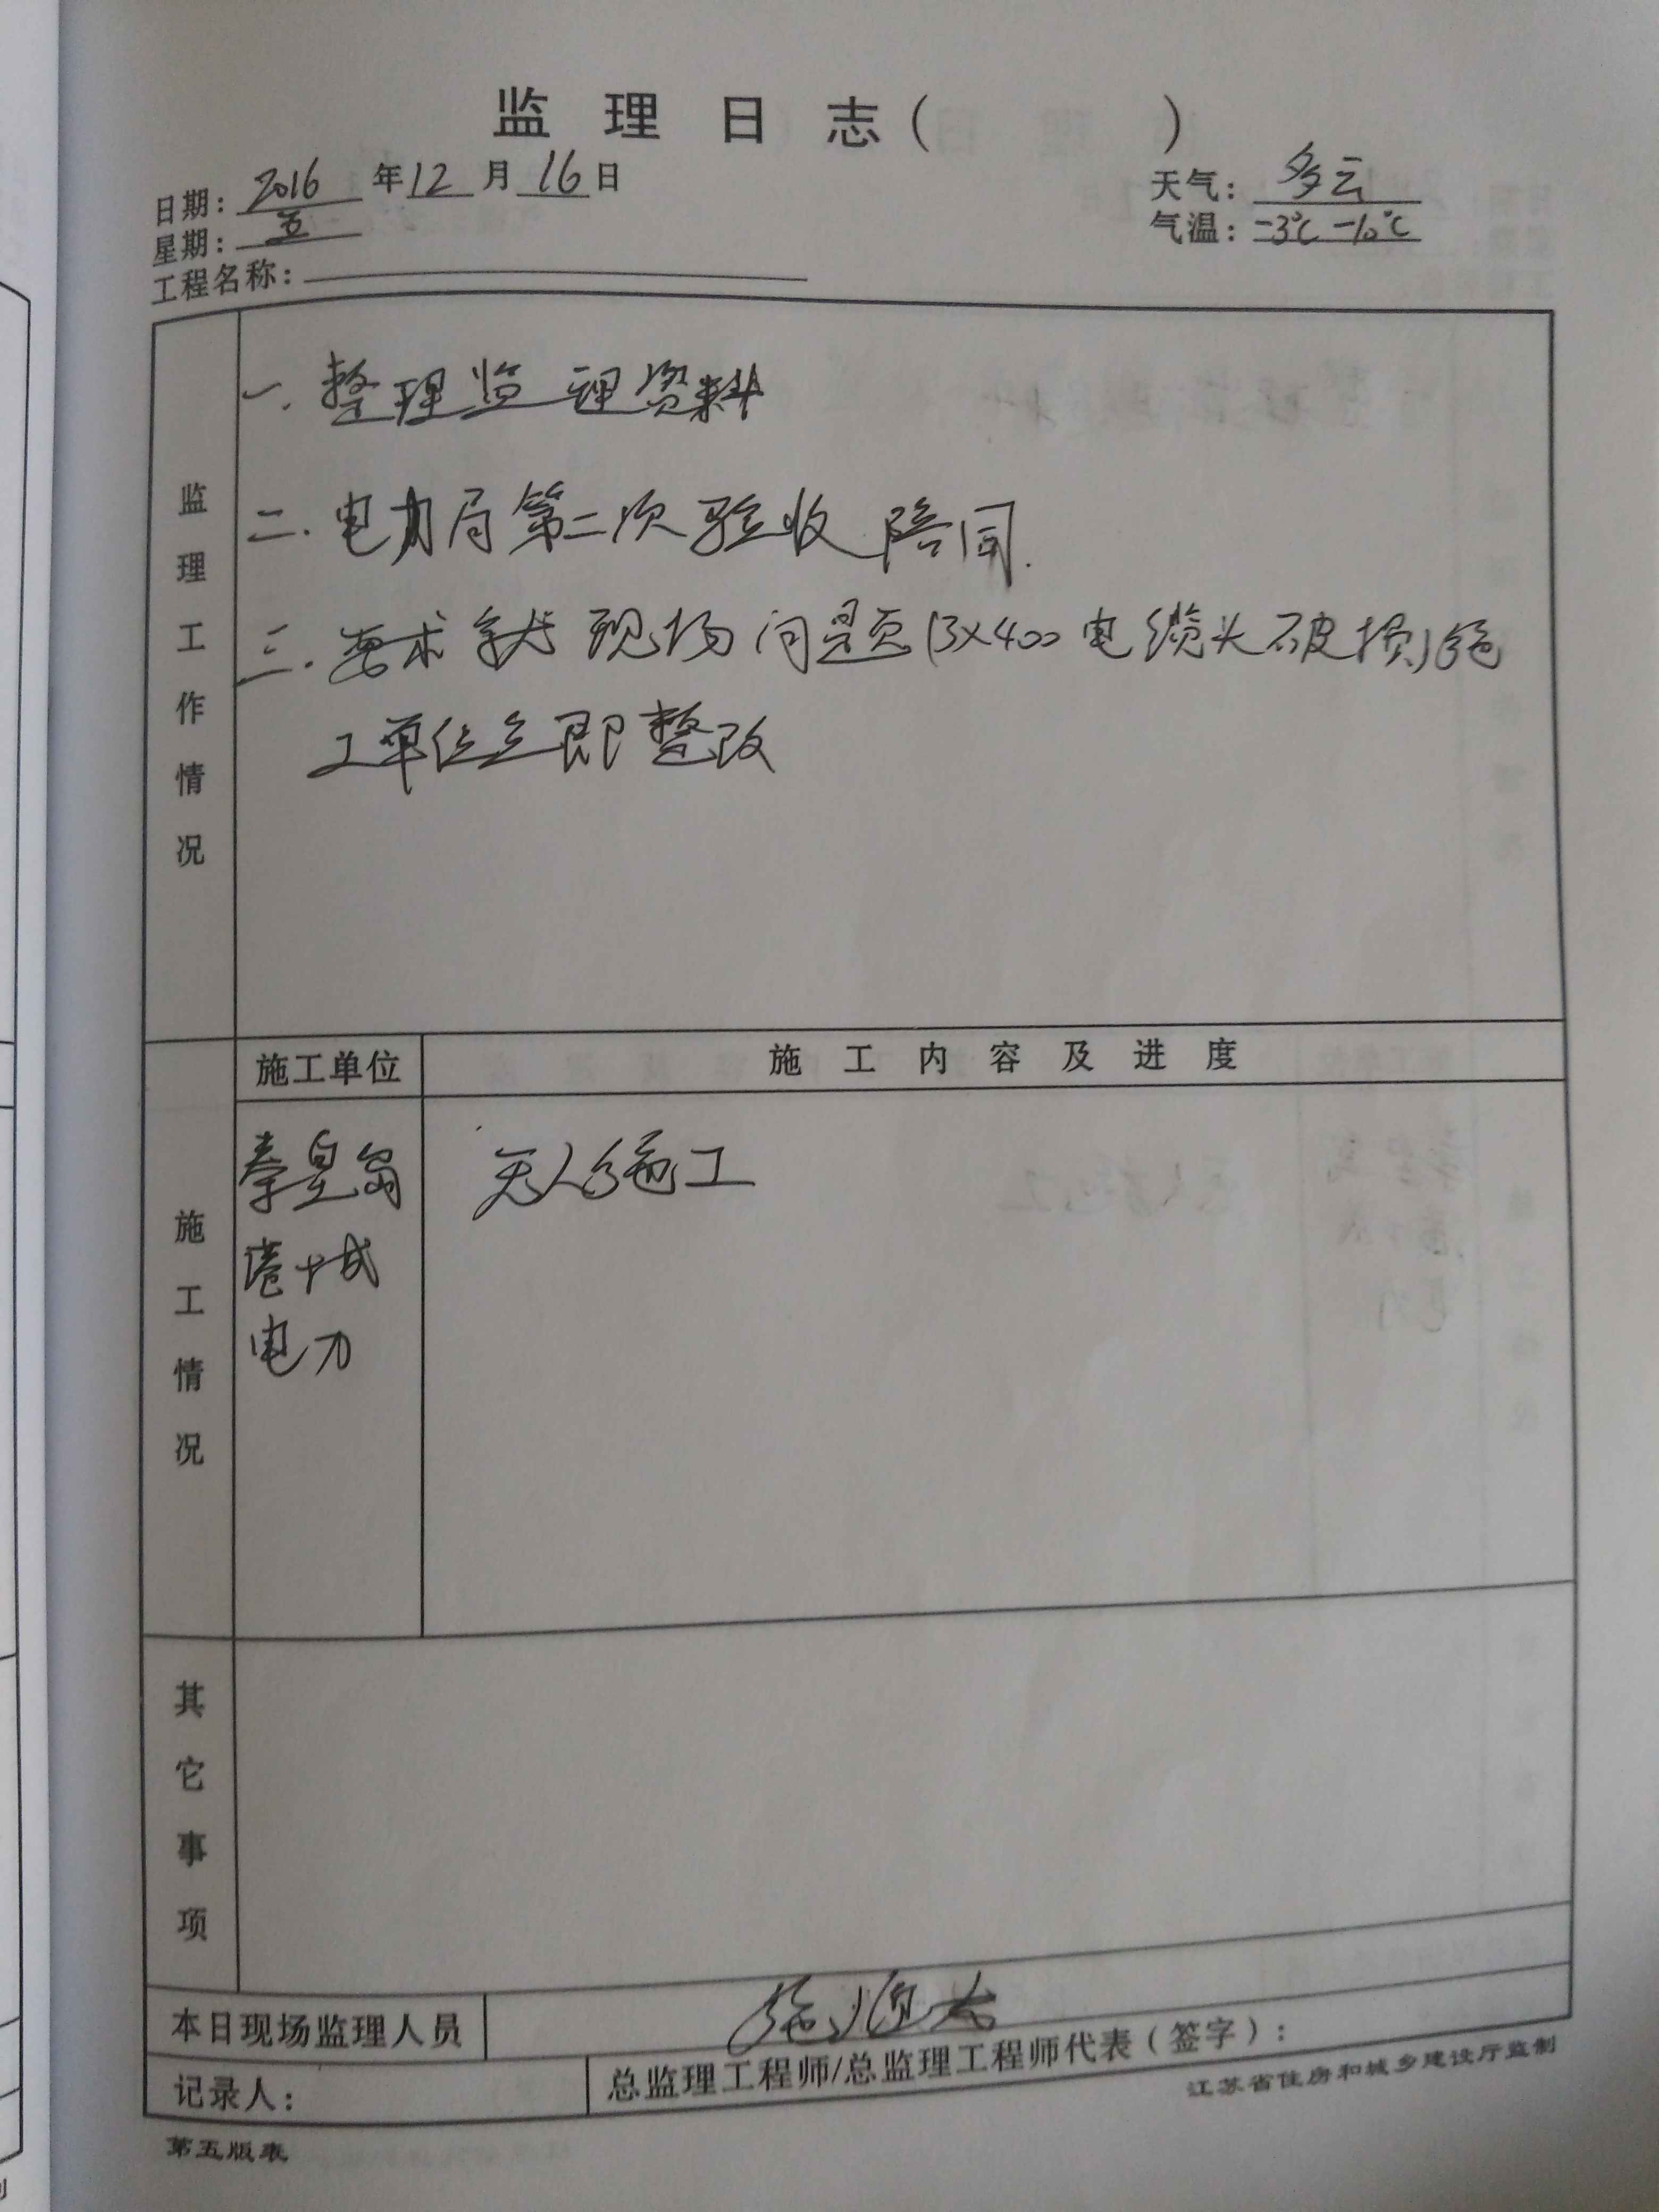 监理日志（ ）
日期：2016年12月16日 天气：多云
星期：五 气温：-3℃-10℃
工程名称：
监理工作情况
一. 整理监理资料
二. 电力局第二次验收陪同.
三. 要求 现场问题(3×400电缆头破损)施
工单位立即整改
施工情况
施工单位 施工内容及进度
秦皇岛 无人施工
港城
电力
其它事项
本日现场监理人员
记录人： 总监理工程师/总监理工程师代表（签字）：
江苏省住房和城乡建设厅监制
第五版表